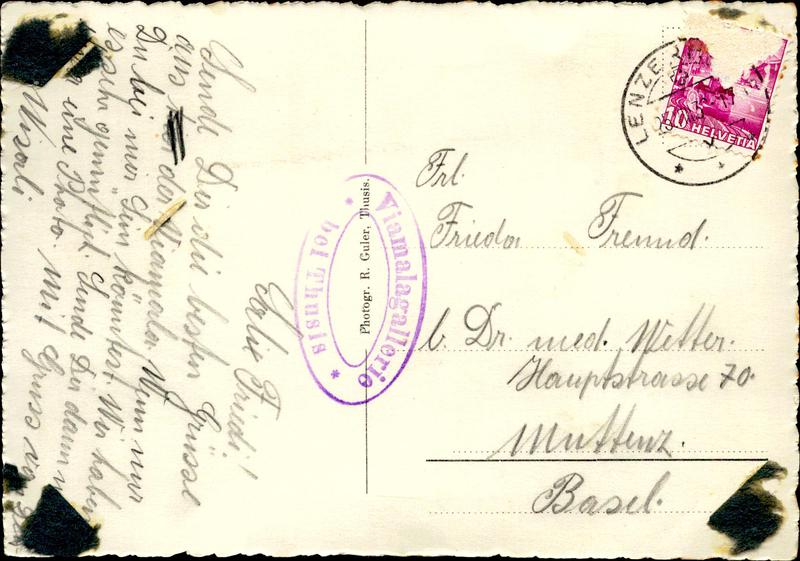 Salü Friedi!
Sende Dir die besten Grüsse
aus der Viamala. Wenn nur
Du bei mir sein könntest. Wir haben
es sehr gemütlich. Sende Dir dann
eine Photo. Mit Gruss von
Photogr. R. Guler, Thusis.
Viamalagallerie
* bei Thusis *
LENZE
10 HELVETIA
Frl.
Frieda Freund.
b. Dr. med. Wetter.
Hauptstrasse 70.
Muttenz.
Basel.